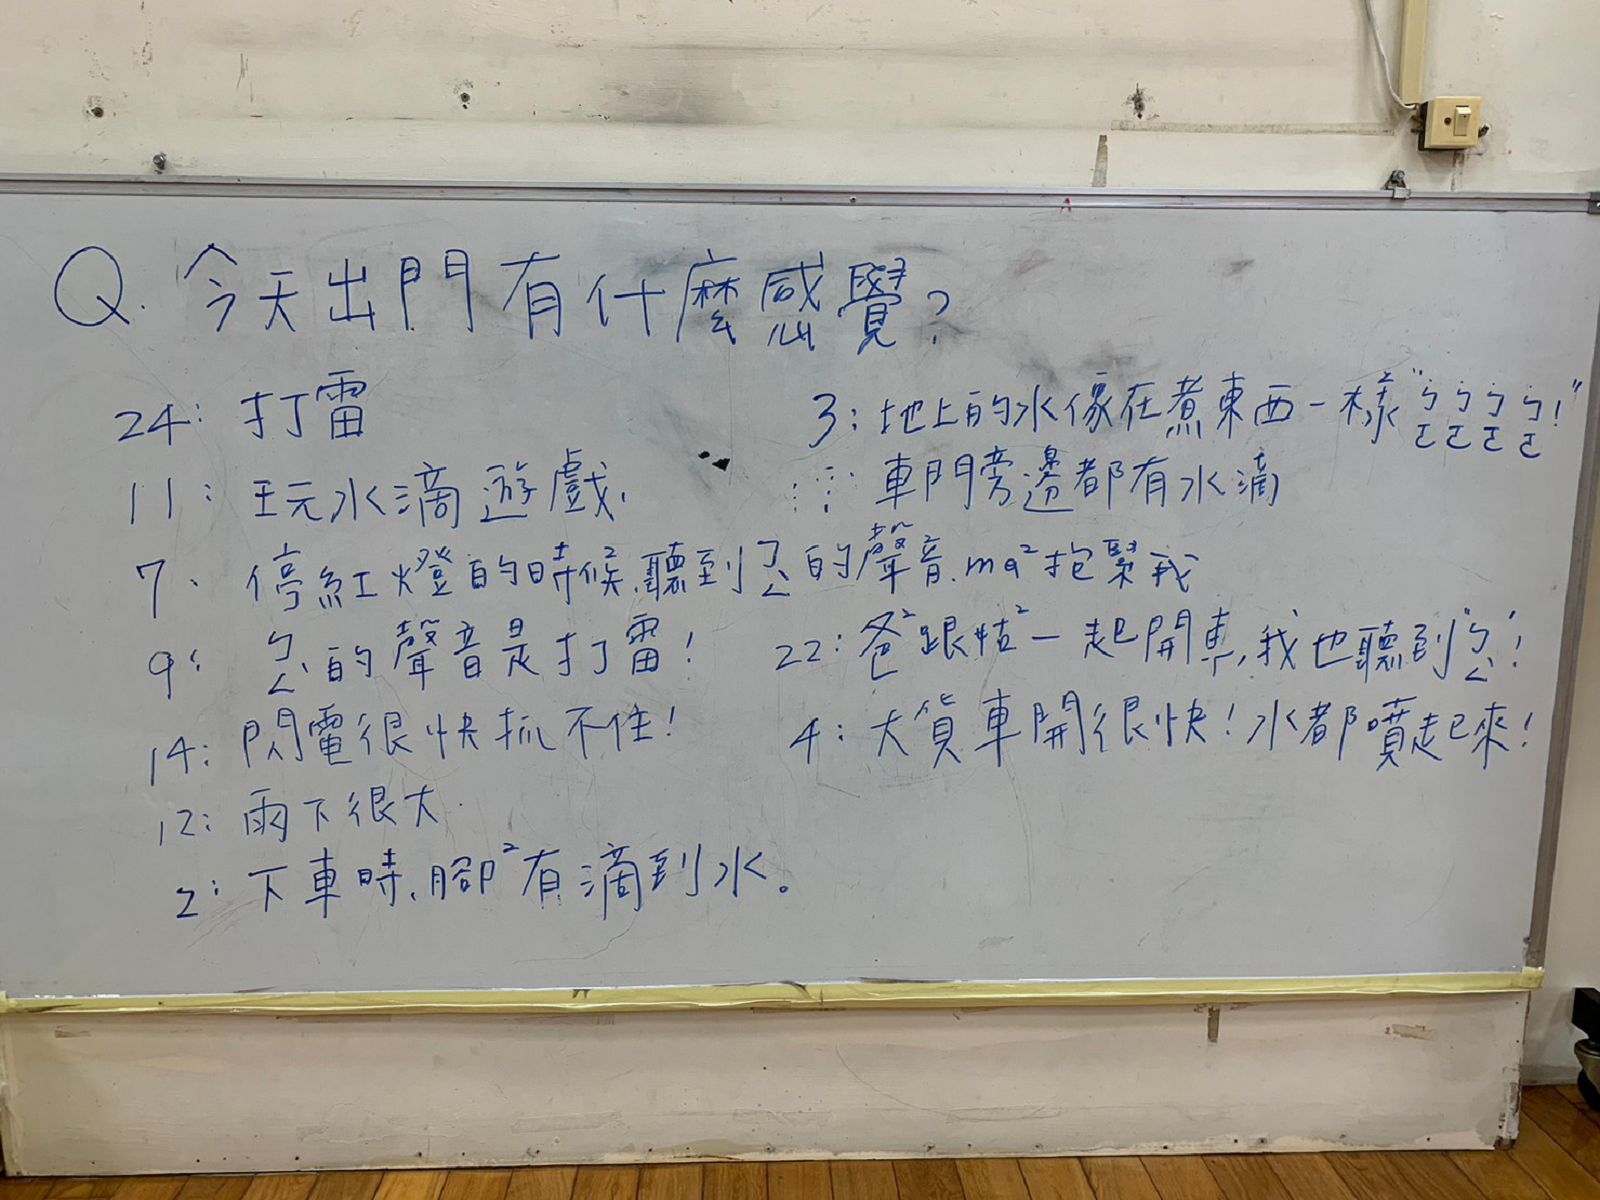 Q. 今天出門有什麼感覺?
24: 打雷
11: 玩水滴遊戲.
7. 停紅燈的時候.聽到ㄅㄥ的聲音.ma²抱緊我
9: ㄅㄥˋ的聲音是打雷!
14: 閃電很快抓不住!
12: 雨下很大.
2: 下車時.腳²有滴到水。
3: 地上的水像在煮東西一樣"ㄅㄛㄅㄛㄅㄛㄅㄛ!"
車門旁邊都有水滴
22: 爸²跟姑²一起開車,我也聽到"ㄅㄥ"!
4: 大貨車開很快!水都噴起來!